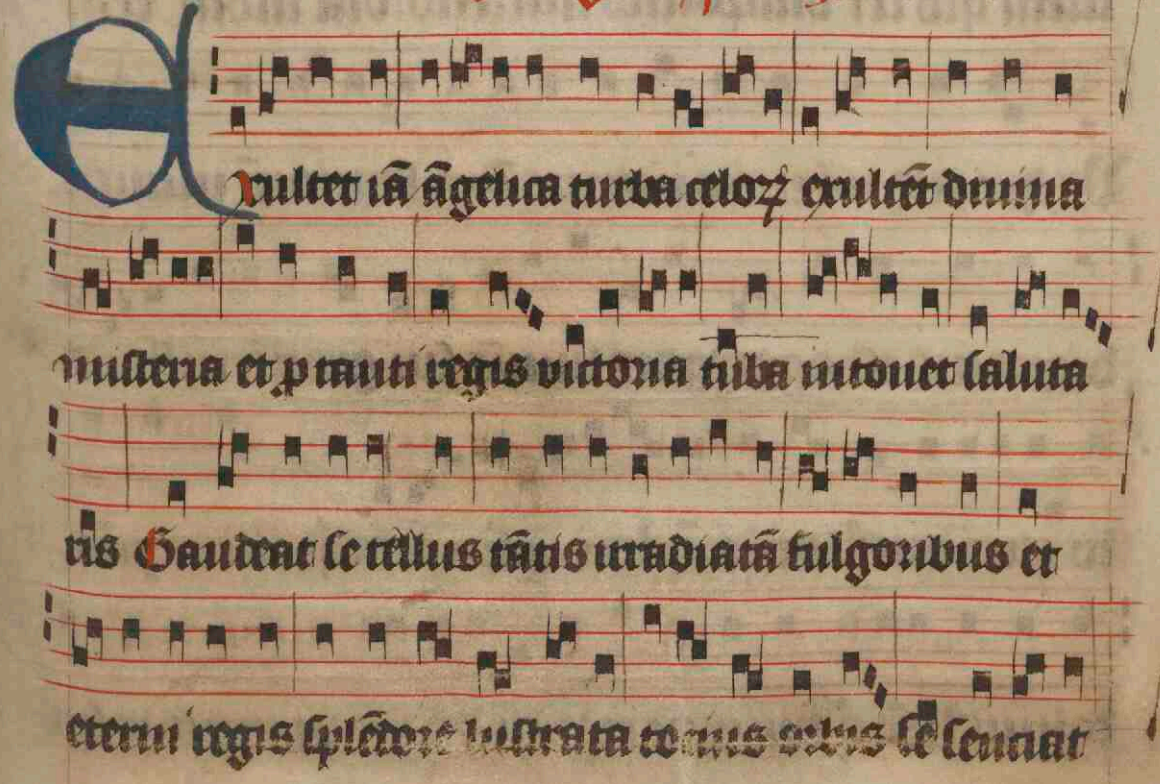 Exultet iā āgelica turba celoꝝ exultēt diuina
misteria et ꝓ tanti regis uictoria tuba intonet saluta
ris Gaudeat se tellus tātis irradiatā fulgoribus et
eterni regis splēdore lustrata totius orbis se senciat